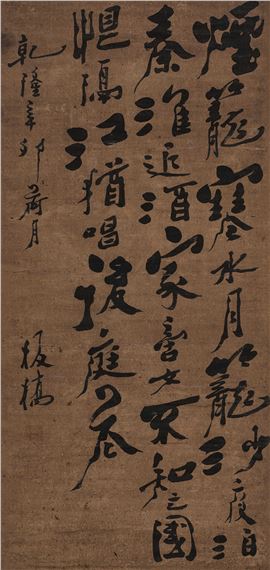 煙籠寒水月籠沙夜泊
秦淮近酒家商女不知亡國
恨隔江猶唱後庭花
乾隆辛卯荷月
板橋